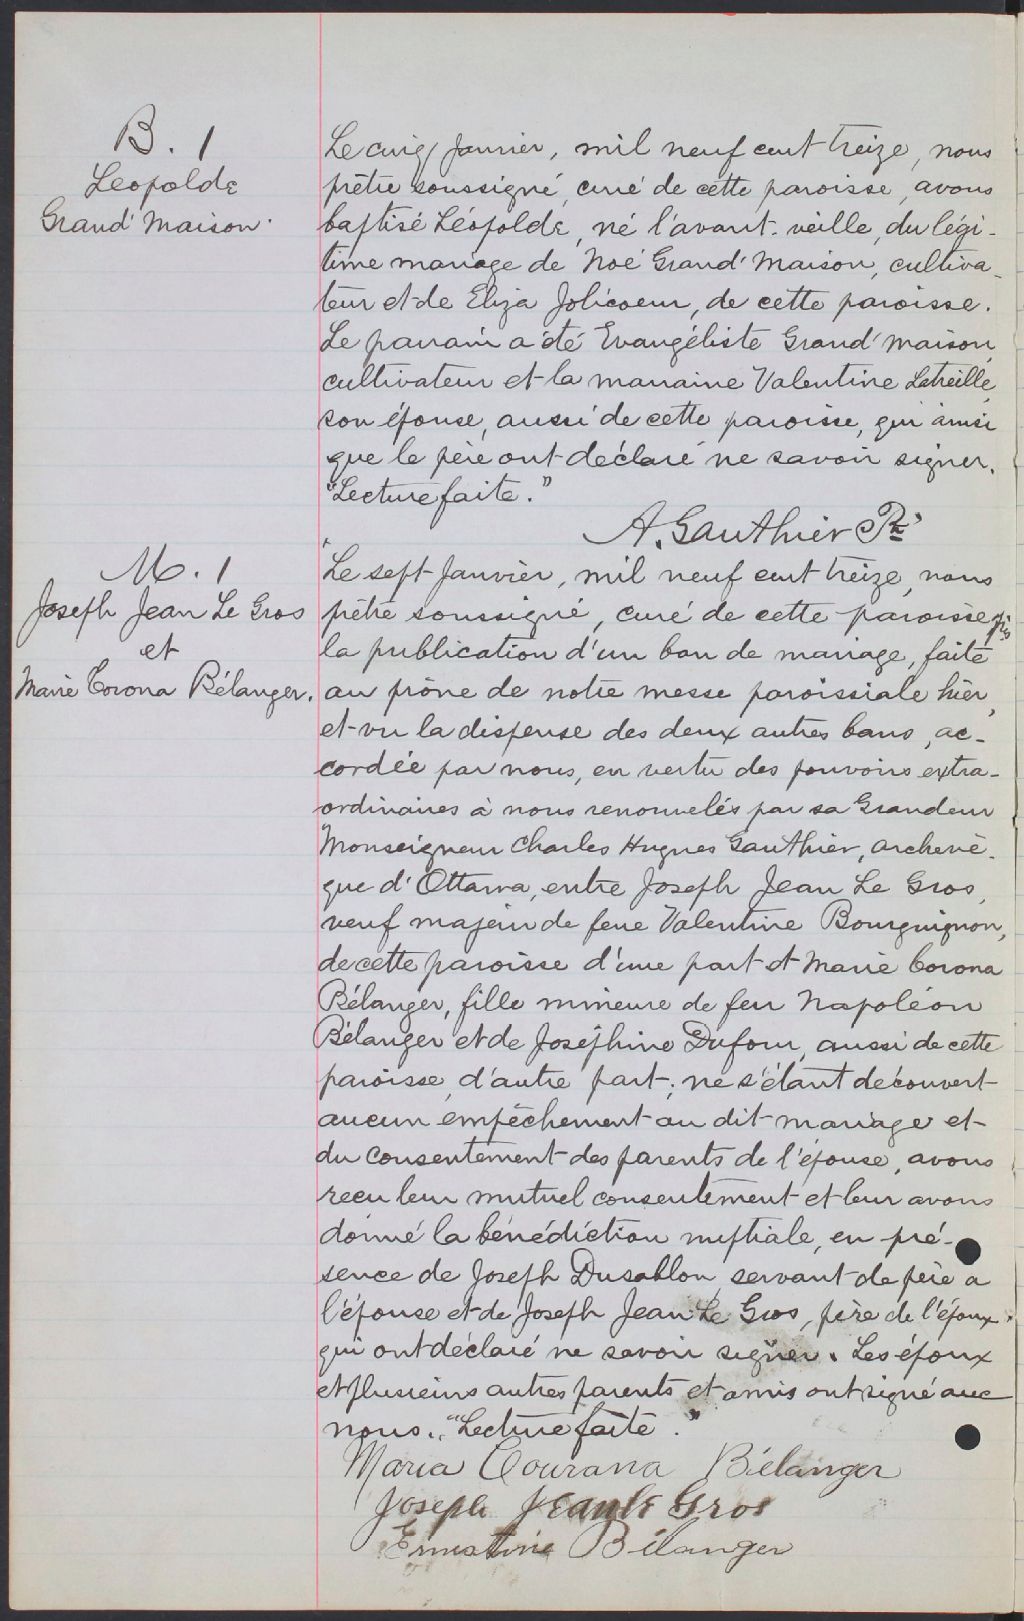 B. 1
Leopolde
Grand'Maison.
Le cinq Janvier, mil neuf cent treize, nous
prêtre soussigné, curé de cette paroisse, avons
baptisé Léopolde, né l'avant-veille, du légi-
time mariage de Noé Grand'Maison, cultiva-
teur et de Eliza Jolicoeur, de cette paroisse.
Le parrain a été Evangéliste Grand'Maison,
cultivateur et la marraine Valentine Latreille,
son épouse, aussi de cette paroisse, qui ainsi
que le père ont déclaré ne savoir signer.
"Lecture faite."
A. Gauthier Ptr
M. 1
Joseph Jean Le Gros
et
Marie Corona Bélanger.
Le sept Janvier, mil neuf cent treize, nous
prêtre soussigné, curé de cette paroisse, après
la publication d'un ban de mariage, faite
au prône de notre messe paroissiale hier,
et vu la dispense des deux autres bans, ac-
cordée par nous, en vertu des pouvoirs extra-
ordinaires à nous renouvelés par sa Grandeur
Monseigneur Charles Hugues Gauthier, archevê-
que d'Ottawa, entre Joseph Jean Le Gros,
veuf majeur de feue Valentine Bourguignon,
de cette paroisse d'une part et Marie Corona
Bélanger, fille mineure de feu Napoléon
Bélanger et de Joséphine Dufour, aussi de cette
paroisse, d'autre part; ne s'étant découvert
aucun empêchement au dit mariage et
du consentement des parents de l'épouse, avons
reçu leur mutuel consentement et leur avons
donné la bénédiction nuptiale, en pré-
sence de Joseph Dusablon, servant de père a
l'épouse et de Joseph Jean Le Gros, père de l'époux
qui ont déclaré ne savoir signer. Les époux
et plusieurs autres parents et amis ont signé avec
nous. "Lecture faite."
Maria Courana Bélanger
Joseph Jean le Gros
Ernestine Bélanger